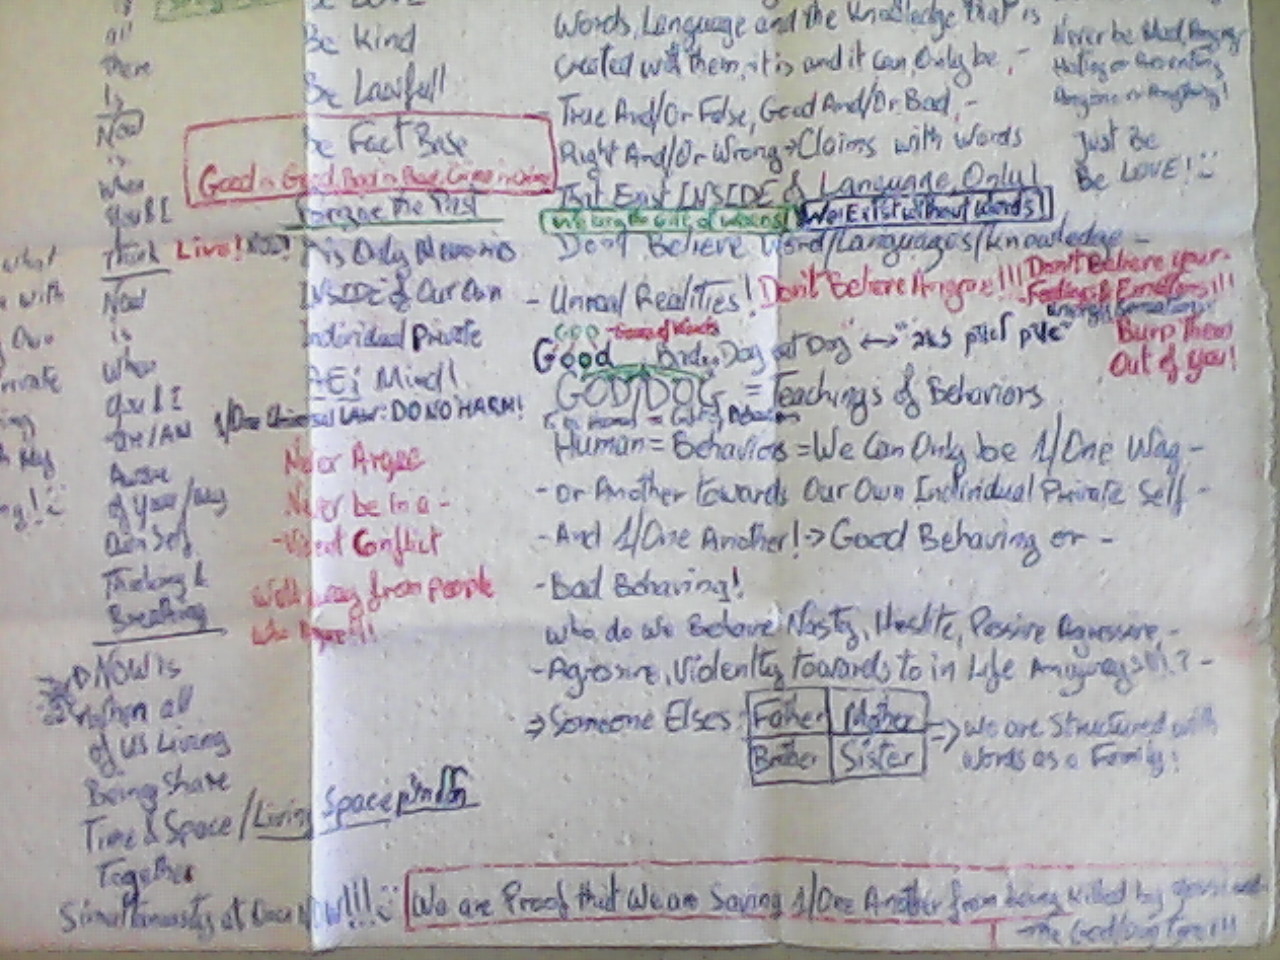 all
There
Is
Now
is
when
you & I
Think
Now
is
when
you & I
Am/Are
Aware
of your/my
Own Self
Thinking &
Breathing
NOW is
when all
of us Living
Being share
Time & Space/Living Space
Together
Simultaneously at Once NOW!!!
what
with
Own
Be Kind
Be Lawfull
Be Fact Base
Good is Good, Bad is Bad, Crime is Crime
Forgive the Past
Live!
is Only Memories
INSIDE of Our Own
Individual Private
Mind!
1/One Universal LAW: DO NO HARM!
Never Argue
Never be in a -
- Violent Conflict
Walk away from people
who Argue!!!
Words, Language and the Knowledge that is
created with them, it is and it can Only be, -
True And/Or False, Good And/Or Bad, -
Right And/Or Wrong → Claims with words
That Exist INSIDE of Language Only!
We Exist without words!
Don't Believe word/Languages/knowledge -
- Unreal Realities! Don't Believe Anyone!!!
Good
GOD/DOG = Teachings of Behaviors
Human = Behaviors = We Can Only be 1/One Way -
- Or Another towards Our Own Individual Private Self -
- And 1/One Another! → Good Behaving or -
- Bad Behaving!
who do we Behave Nasty, Passive Agressive, -
- Agressive, Violently towards to in Life Anyways!!!? -
⇒ Someone Elses:
Father Mother
Brother Sister
⇒ we are Structured with
words as a Family!
Never be Mad, Angry
Hating or Resenting
Anyone or Anything!
Just Be
Be LOVE!
Don't Believe your
Feelings & Emotions!!!
Burp Them
Out of you!
We are Proof that We are Saving 1/One Another from being killed by